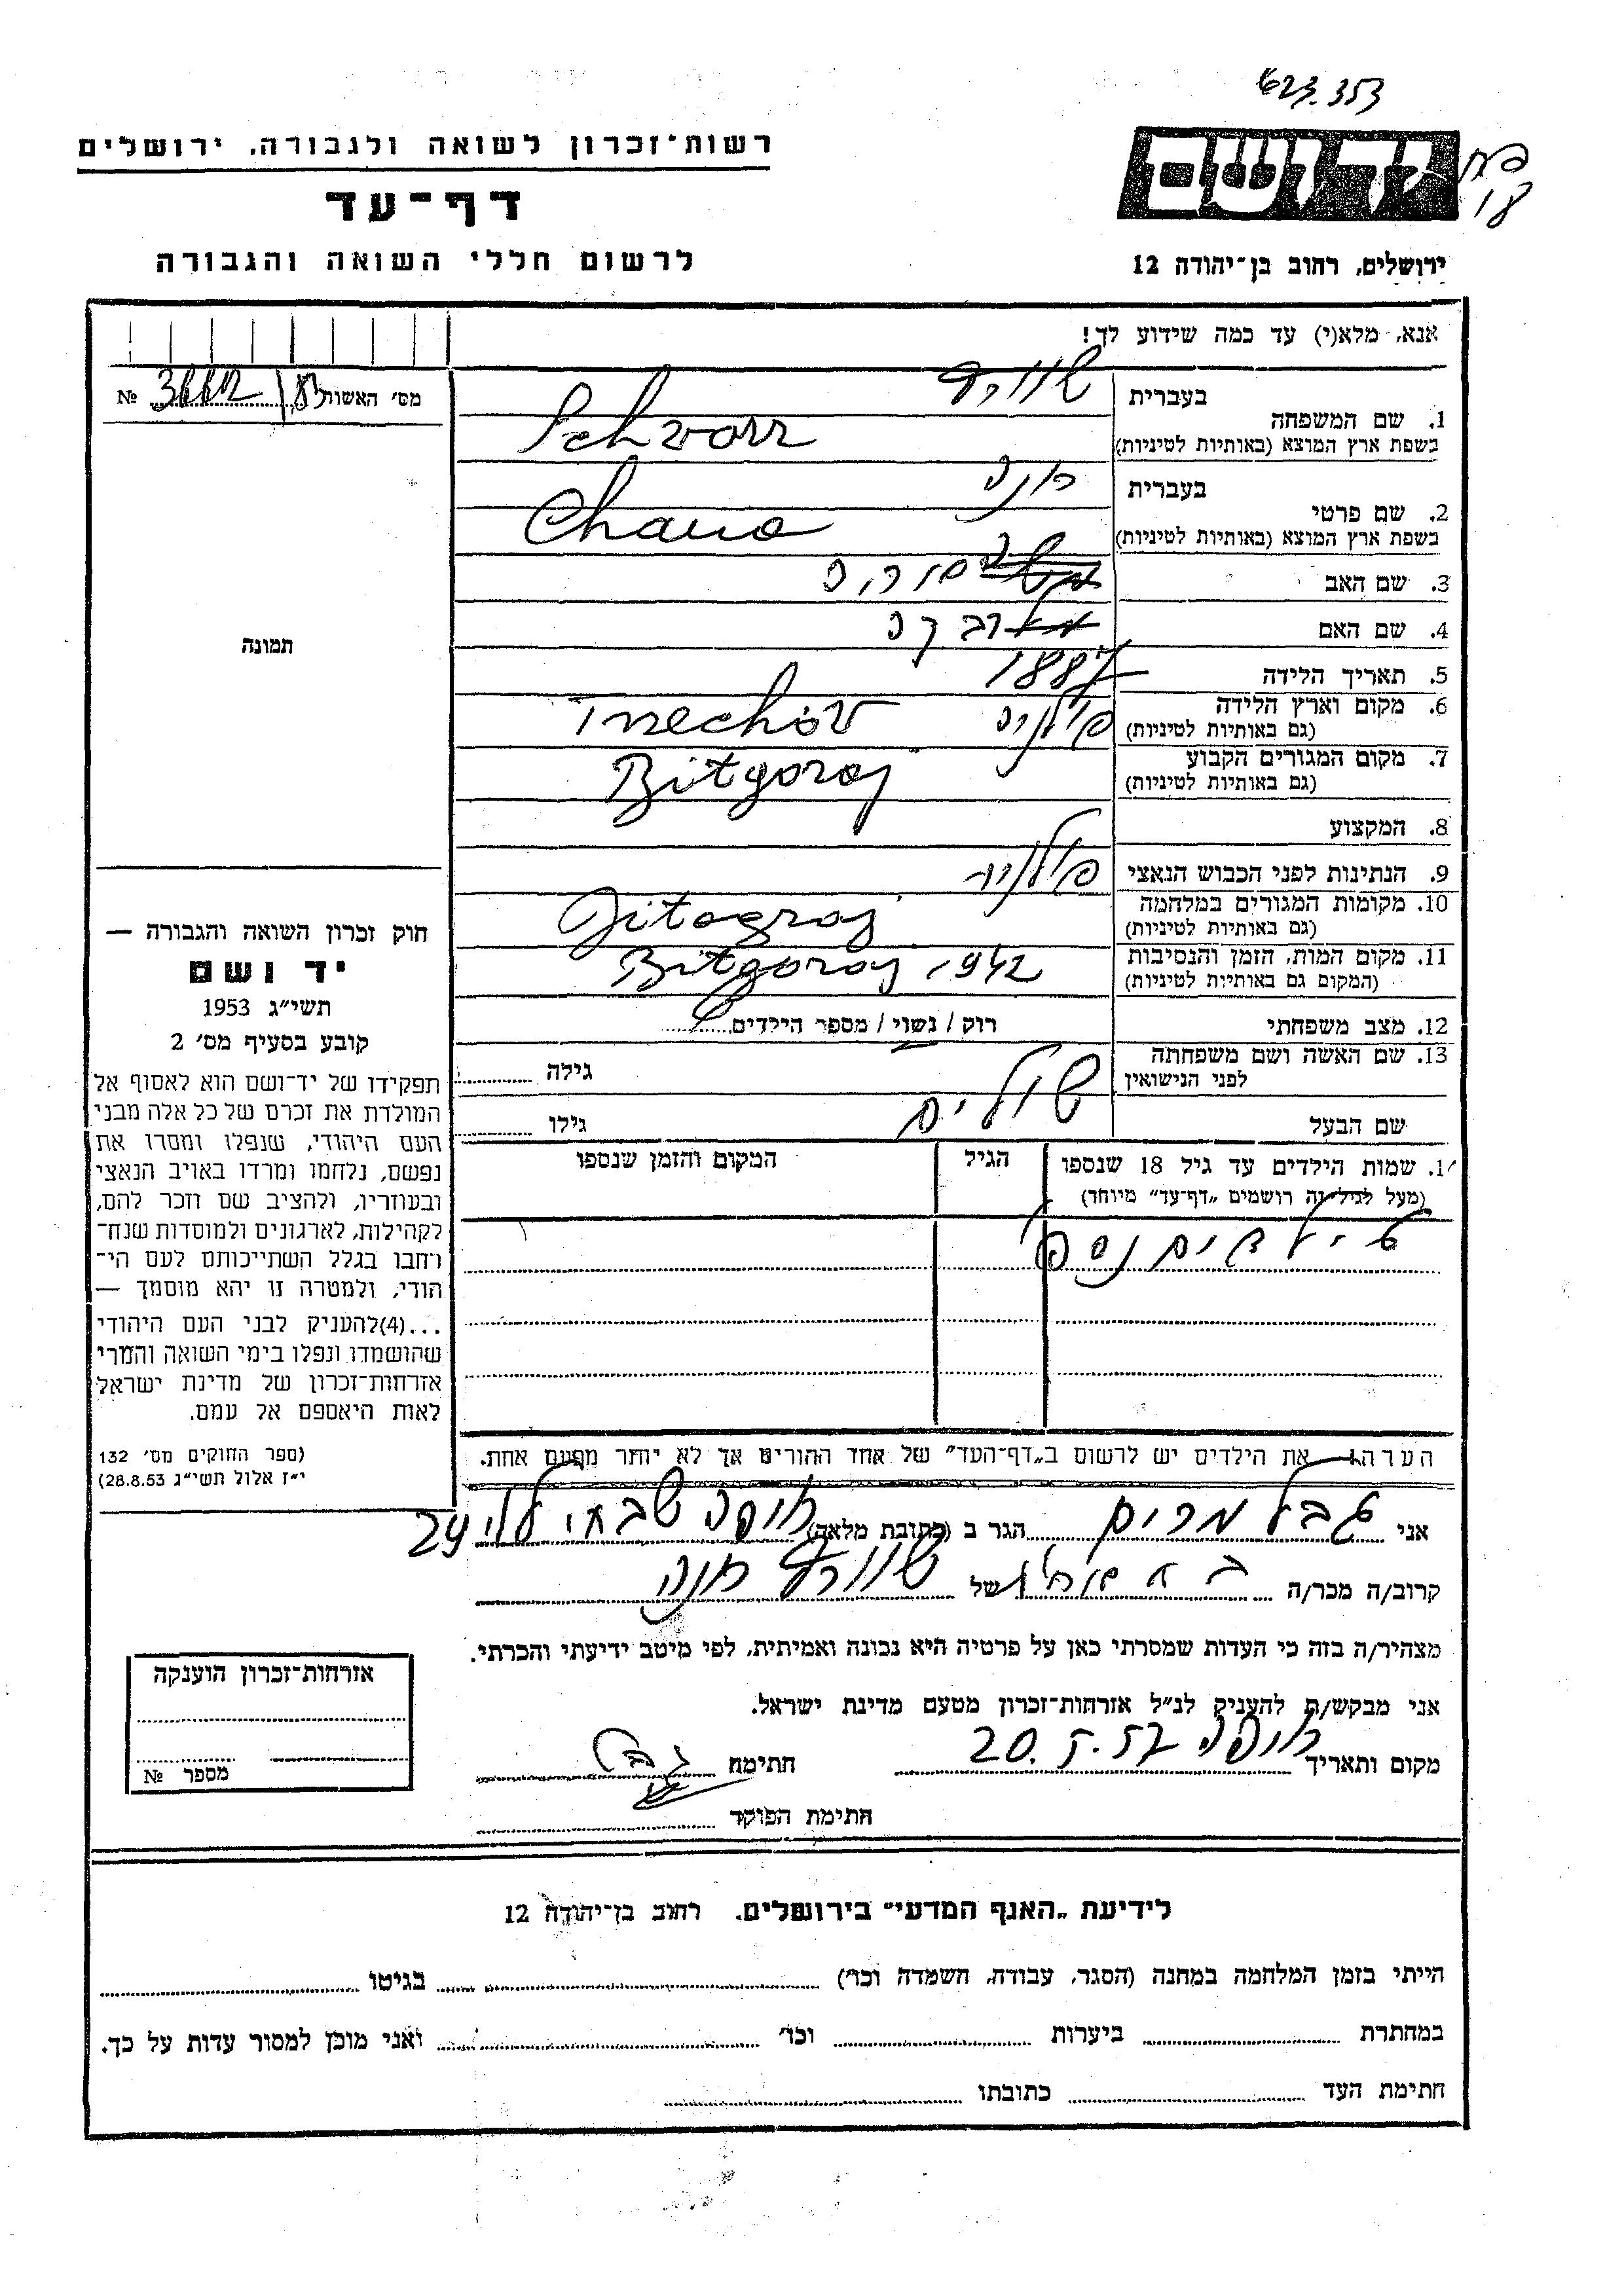 623.353
רשות־זכרון לשואה ולגבורה, ירושלים
דף־עד
לרשום חללי השואה והגבורה
יד ושם
ירושלים, רחוב בן־יהודה 12
אנא, מלא(י) עד כמה שידוע לך!
מס׳ האשור № 
1. שם המשפחה
בעברית שוורץ
בשפת ארץ המוצא (באותיות לטיניות) Schvarz
2. שם פרטי
בעברית חנה
בשפת ארץ המוצא (באותיות לטיניות) Chana
3. שם האב
4. שם האם רבקה
5. תאריך הלידה 1887
6. מקום וארץ הלידה פולניה
(גם באותיות לטיניות)
7. מקום המגורים הקבוע Bitgoraj
(גם באותיות לטיניות)
8. המקצוע
9. הנתינות לפני הכבוש הנאצי פולנית
10. מקומות המגורים במלחמה
(גם באותיות לטיניות)
11. מקום המות, הזמן והנסיבות Bitgoraj 1942
(המקום גם באותיות לטיניות)
12. מצב משפחתי רוק / נשוי / מספר הילדים
13. שם האשה ושם משפחתה
לפני הנישואין
גילה
שם הבעל שולים
גילו
14. שמות הילדים עד גיל 18 שנספו
(מעל לגיל זה רושמים „דף־עד״ מיוחד)
הגיל
המקום והזמן שנספו
ילדים נספו
הערה: את הילדים יש לרשום ב„דף־העד״ של אחד ההורים אך לא יותר מפעם אחת.
תמונה
חוק זכרון השואה והגבורה —
יד ושם
תשי״ג 1953
קובע בסעיף מס׳ 2
תפקידו של יד־ושם הוא לאסוף אל
המולדת את זכרם של כל אלה מבני
העם היהודי, שנפלו ומסרו את
נפשם, נלחמו ומרדו באויב הנאצי
ובעוזריו, ולהציב שם וזכר להם,
לקהילות, לארגונים ולמוסדות שנח־
רחבו בגלל השתייכותם לעם הי־
הודי, ולמטרה זו יהא מוסמך —
...(4)להעניק לבני העם היהודי
שהושמדו ונפלו בימי השואה והמרי
אזרחות־זכרון של מדינת ישראל
לאות היאספם אל עמם.
(ספר החוקים מס׳ 132
י״ז אלול תשי״ג 28.8.53)
אני טבל מרים הגר ב (כתובת מלאה) חיפה שבתי לוי 29
קרוב/ה מכר/ה של שוורץ חנה
מצהיר/ה בזה כי העדות שמסרתי כאן על פרטיה היא נכונה ואמיתית, לפי מיטב ידיעתי והכרתי.
אני מבקש/ת להעניק לנ״ל אזרחות־זכרון מטעם מדינת ישראל.
מקום ותאריך חיפה 20.5.57 חתימה
חתימת הפוקד
אזרחות־זכרון הוענקה
מספר №
לידיעת „האגף המדעי״ בירושלים, רחוב בן־יהודה 12
הייתי בזמן המלחמה במחנה (הסגר, עבודה, השמדה וכו׳) בגיטו
במחתרת ביערות וכו׳ ואני מוכן למסור עדות על כך.
חתימת העד כתובתו